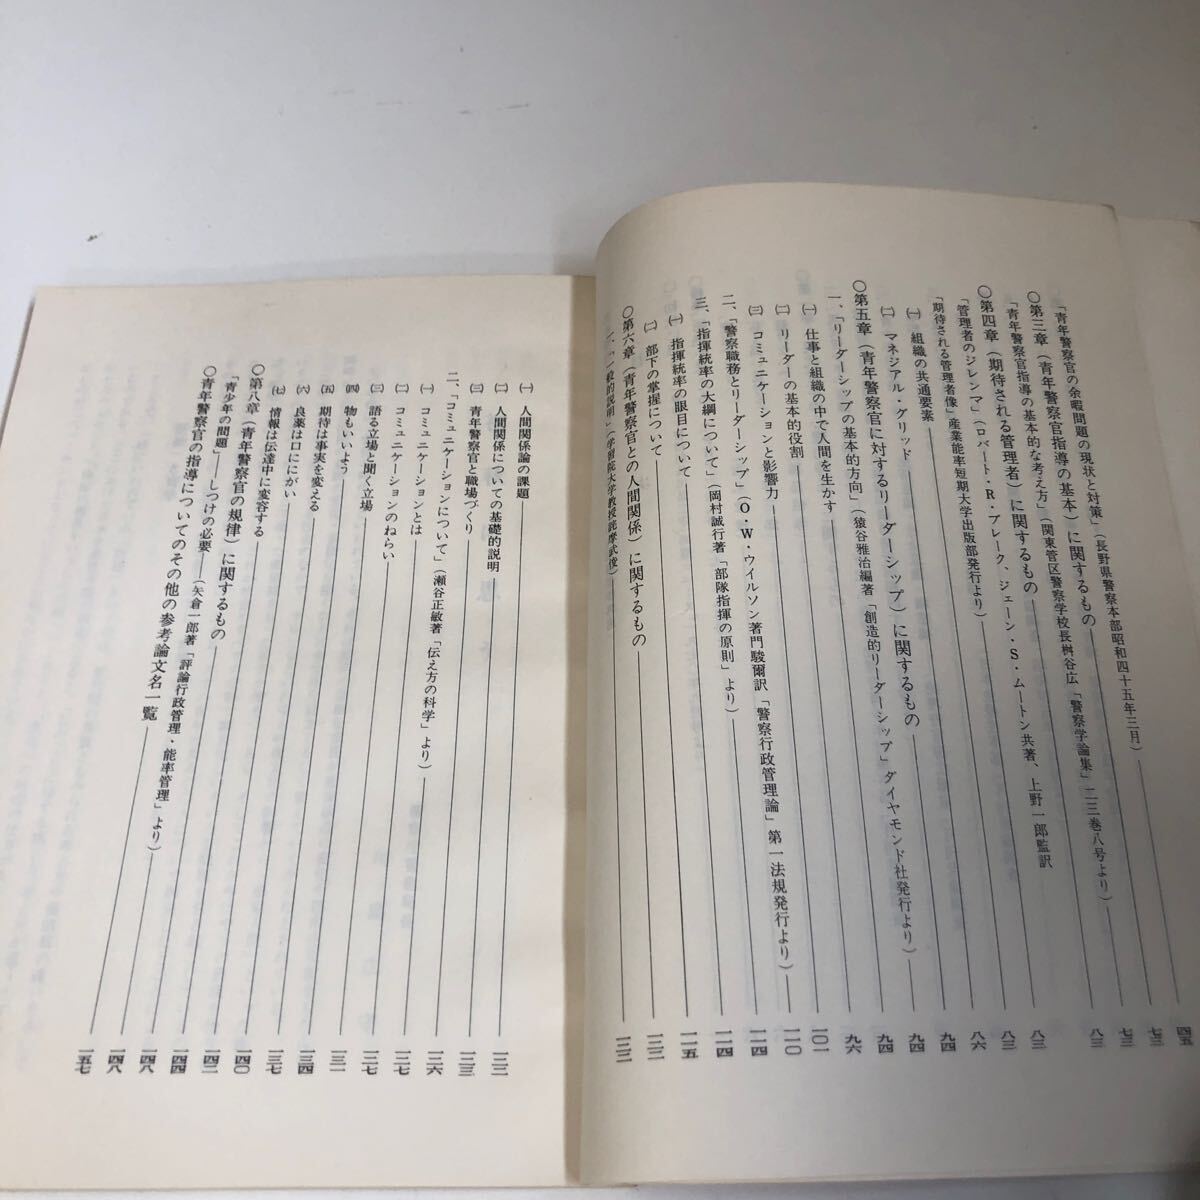 「青年警察官の余暇問題の現状と対策」(長野県警察本部昭和四十五年三月)―四五
○第三章(青年警察官指導の基本)に関するもの―七三
「青年警察官指導の基本的な考え方」(関東管区警察学校長桝谷広「警察学論集」二三巻八号より)―七三
○第四章(期待される管理者)に関するもの―八三
「管理者のジレンマ」(ロバート・R・ブレーク、ジェーン・S・ムートン共著、上野一郎監訳
「期待される管理者像」産業能率短期大学出版部発行より)―八三
㈠ 組織の共通要素―八六
㈡ マネジアル・グリッド―九四
○第五章(青年警察官に対するリーダーシップ)に関するもの―九四
一、「リーダーシップの基本的方向」(猿谷雅治編著「創造的リーダーシップ」ダイヤモンド社発行より)―九四
㈠ 仕事と組織の中で人間を生かす―九六
㈡ リーダーの基本的役割―一〇一
㈢ コミュニケーションと影響力―一一〇
二、「警察職務とリーダーシップ」(O・W・ウイルソン著門駿爾訳「警察行政管理論」第一法規発行より)―一一四
三、「指揮統率の大綱について」(岡村誠行著「部隊指揮の原則」より)―一一四
㈠ 指揮統率の眼目について―一一五
㈡ 部下の掌握について
○第六章(青年警察官との人間関係)に関するもの
一、「一般的説明」(学習院大学教授詫摩武俊)
㈠ 人間関係論の課題
㈡ 人間関係についての基礎的説明
㈢ 青年警察官と職場づくり
二、「コミュニケーションについて」(瀬谷正敏著「伝え方の科学」より)―一二六
㈠ コミュニケーションとは―一二七
㈡ コミュニケーションのねらい―一二七
㈢ 語る立場と聞く立場
㈣ 物もいいよう―一三四
㈤ 期待は事実を変える―一三七
㈥ 良薬は口ににがい―一四〇
㈦ 情報は伝達中に変容する―一四二
○第八章(青年警察官の規律)に関するもの―一四四
「青少年の問題」―しつけの必要―(矢倉一郎著「評論行政管理・能率管理」より)―一四八
○青年警察官の指導についてのその他の参考論文名一覧―一五七